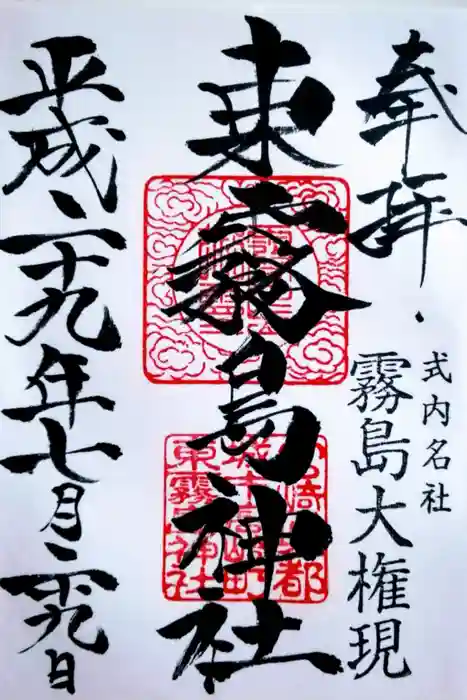 奉拝
式内名社
霧島大権現
東霧島神社
平成二十九年七月二十九日